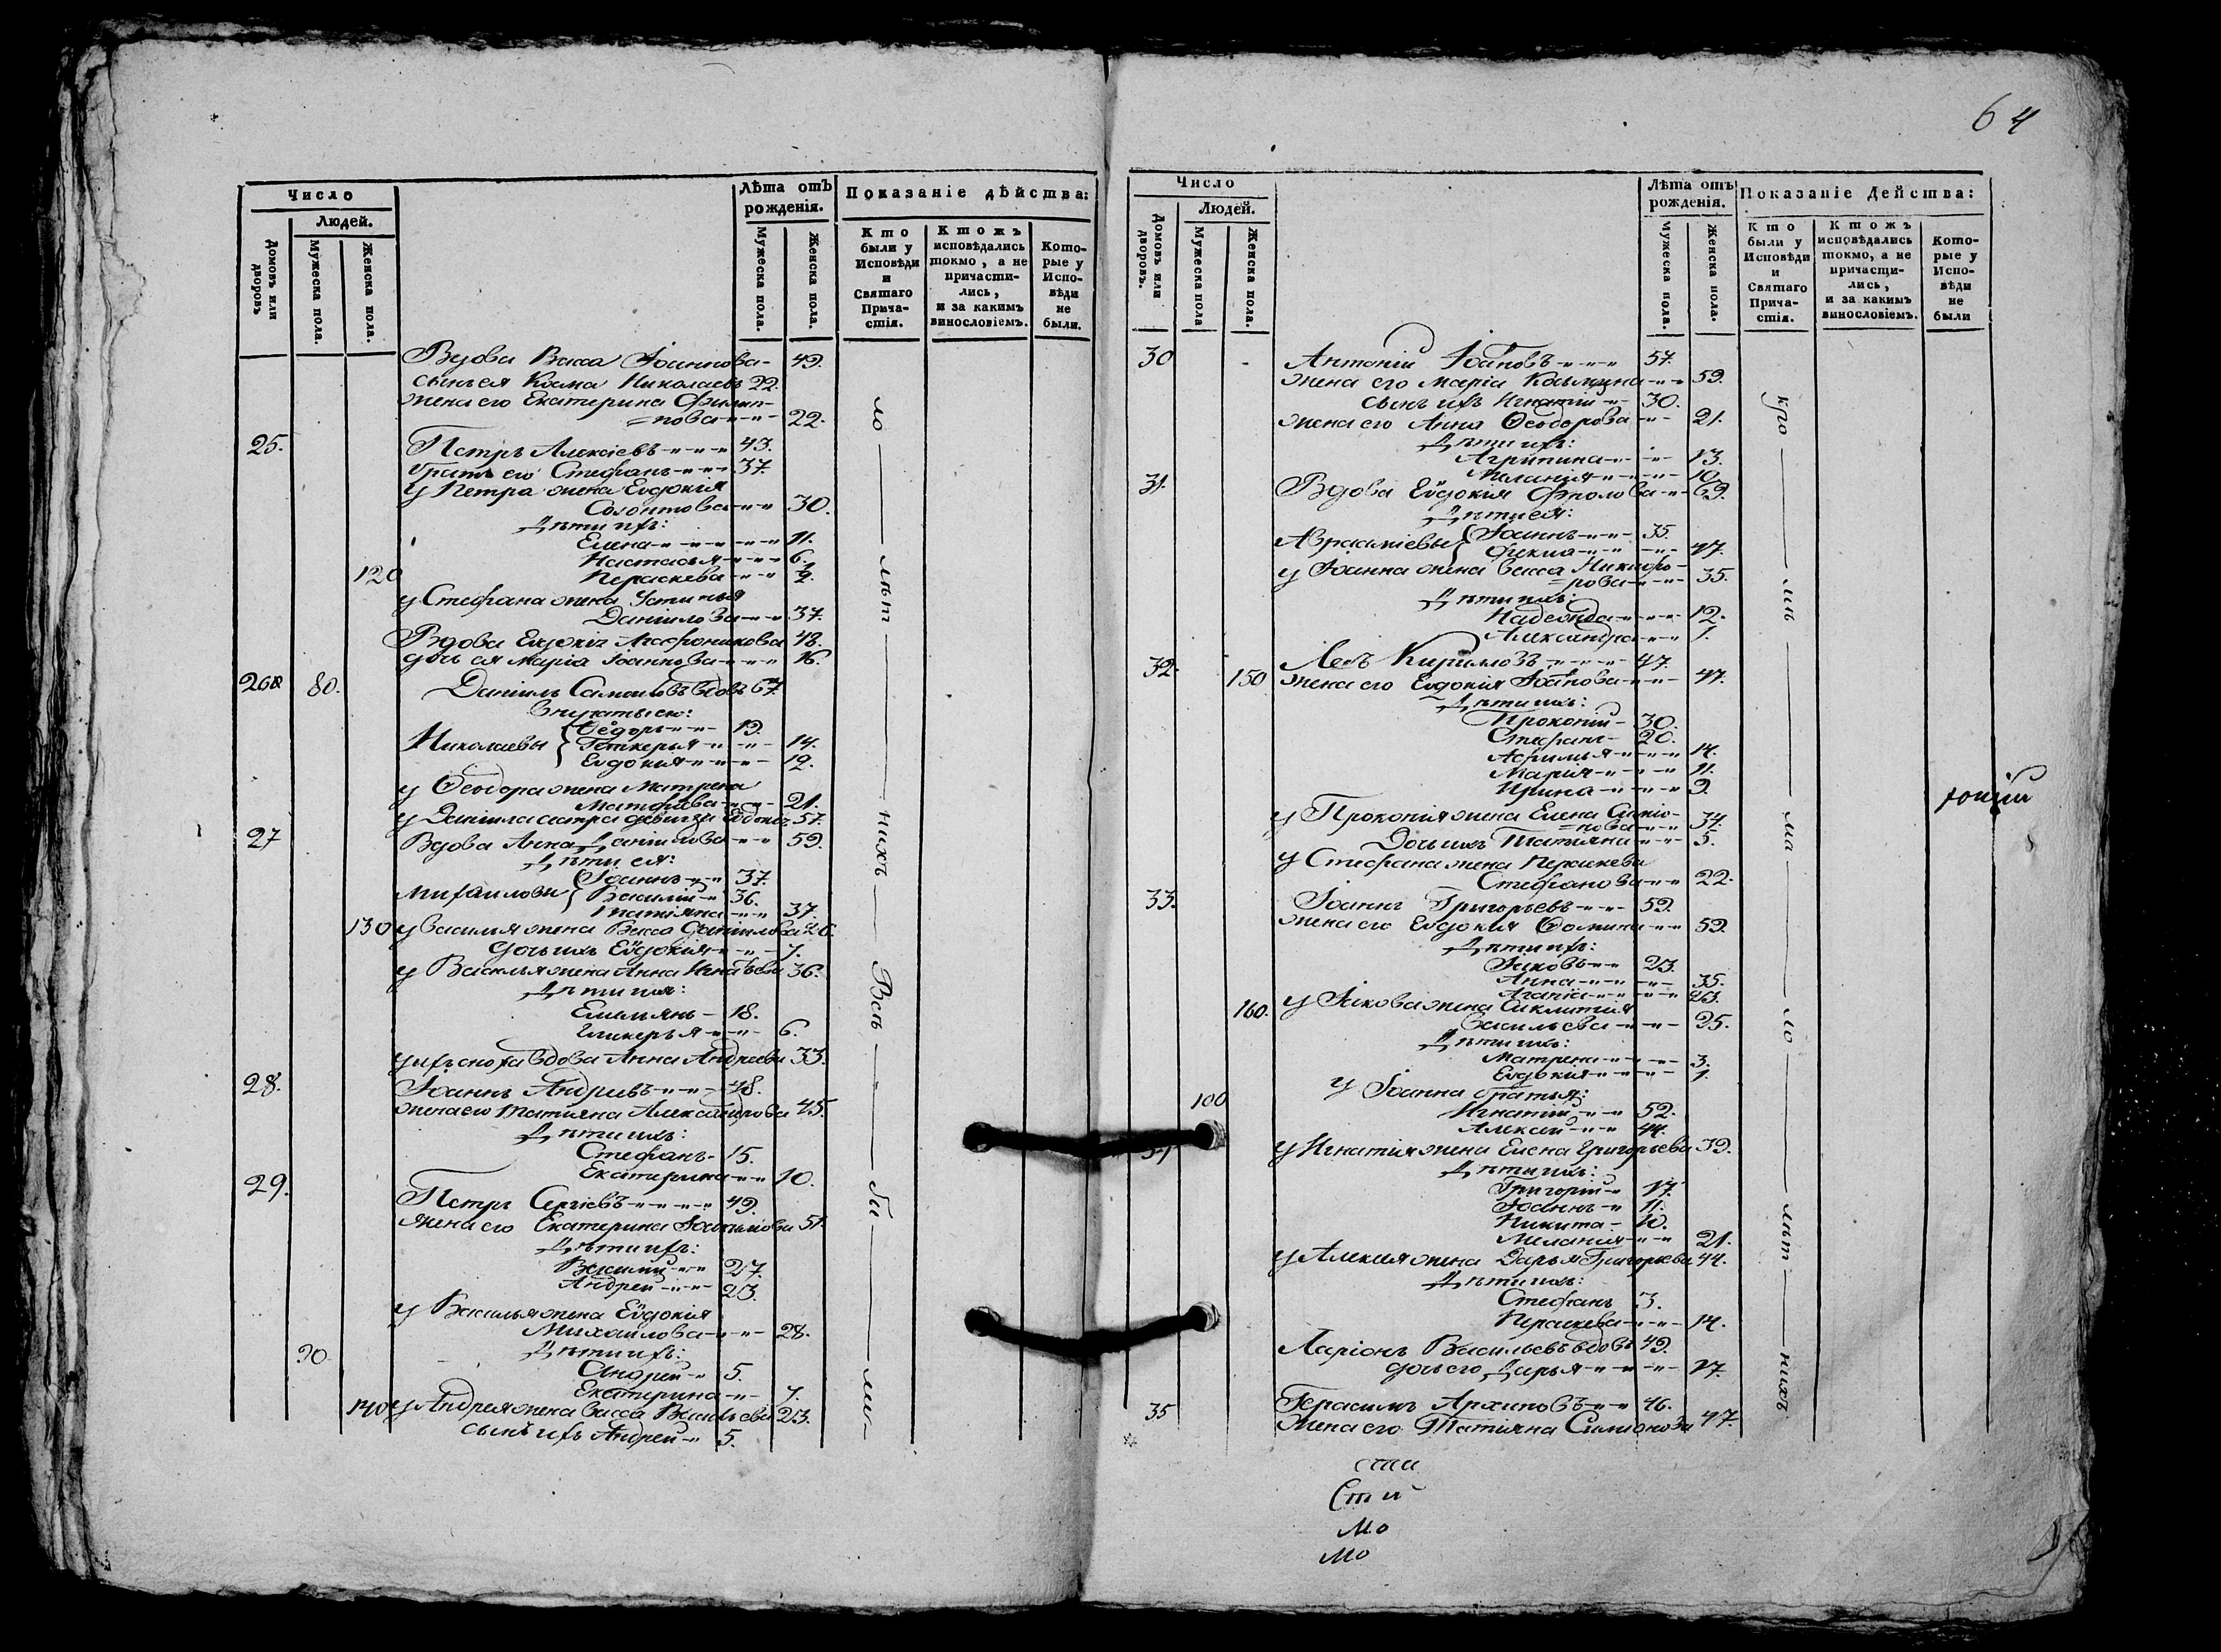 Число
Людей.
Домовъ или дворовъ
Мужеска пола.
Женска пола.
Лѣта отъ рожденія.
Мужеска пола.
Женска пола.
Показаніе дѣйства:
Кто были у Исповѣди и Святаго Причастія.
Ктожъ исповѣдались токмо, а не причастились, и за какимъ винословіемъ.
Которые у Исповѣди не были.
Вдова Васса Іоаннова 49.
сынъ ея Косма Николаевъ 22.
жена его Екатерина Филип-
=пова 22.
25. Петръ Алексіевъ 43.
братъ его Стефанъ 37.
у Петра жена Евдокія
30.
Дѣти ихъ:
Елена 11.
Настасья 6.
120 Параскева
у Стефана жена Устинья
Даніилова 37.
Вдова Евдокія 48.
дочь ея Марія Іоаннова 16.
26 80. Даніилъ вдовъ 67
Внучаты его:
Николаевы { Ѳеодоръ 19.
Гликерья 14.
Евдокия 12.
у Ѳеодора жена Матрена
Матфѣева 21.
у Даніила сестра девица 57.
27 Вдова Анна Даніилова 59.
Дѣти ея:
Михаиловы { Іоаннъ 37.
Василій 36.
Татіяна 37.
130 у жена Васса Даніилова 26.
дочь ихъ Евдокія 7.
у Василья жена Анна Игнатьева 36.
Дѣти ихъ:
Емельянъ 18.
Гликерья 6.
у ихъ сноха вдова Анна Андреева 33.
28. Іоаннъ Андреевъ 48.
жена его Татіяна Александрова 45.
Дѣти ихъ:
Стефанъ 15.
Екатерина 10.
29. Петръ Сергіевъ 49.
жена его Екатерина 51.
Дѣти ихъ:
Василій 27.
Андрей 23.
у Василья жена Евдокія
Михайлова 28.
90 Дѣти ихъ:
Андрей 5.
Екатерина 7.
140 у Андрея жена Васса Васильева 23.
сынъ ихъ Андрей 5.
ло лѣт нихъ Всѣ бы ли
64
Число
Людей.
Домовъ или дворовъ.
Мужеска пола
Женска пола.
Лѣта отъ рожденія.
Мужеска пола.
Женска пола.
Показаніе Действа:
Кто были у Исповѣди и Святаго Причастія.
Ктожъ исповѣдались токмо, а не причастились, и за какимъ винословіемъ.
Которые у Исповѣди не были
30 Антоній Іоановъ 57.
жена его Марія Космина 59.
сынъ ихъ Игнатій 30.
жена его Анна Ѳеодорова 21.
Дѣти ихъ:
Агрипина 13.
Меланія 10.
31. Вдова Евдокія 69.
Дѣти ея:
{ Іоаннъ 35.
Фекла
у Іоанна жена Васса Никифо-
=рова 35.
Дѣти ихъ:
Надежда 12.
Александра 1.
32. Левъ Кирилловъ 47.
150 жена его Евдокія Іоанова 47.
Дѣти ихъ:
Прокопій 30.
Стефанъ 20.
14.
Марія 11.
Ирина 9.
у Прокопія жена Елена Симіо-
=нова 34.
Дочь ихъ Татіяна 5.
у Стефана жена Параскева
Стефанова 22.
33. Іоаннъ Григорьевъ 59.
жена его Евдокія Ѳомина 59.
Дѣти ихъ:
Іаковъ 23.
Анна 35.
Агапія 23.
160. у Іакова жена
Васильева 25.
Дѣти ихъ:
Матрена 3.
Евдокія 1.
у Іоанна братья:
100 Игнатій 52.
Алексей 44.
у Игнатія жена Елена Григорьева 39.
Дѣти ихъ:
Григорій 17.
Іоаннъ 11.
Никита 10.
Меланія 21.
у Алексія жена Дарья Григорьева 44.
Дѣти ихъ:
Стефанъ 3.
Параскева 14.
Ларіонъ Васильевъ вдовъ 49.
дочь его Дарья 17.
35 Герасимъ Архиповъ 46.
жена его Татіяна Симіонова 47.
кро мѣ ма ло лѣт нихъ
Мо
Мо